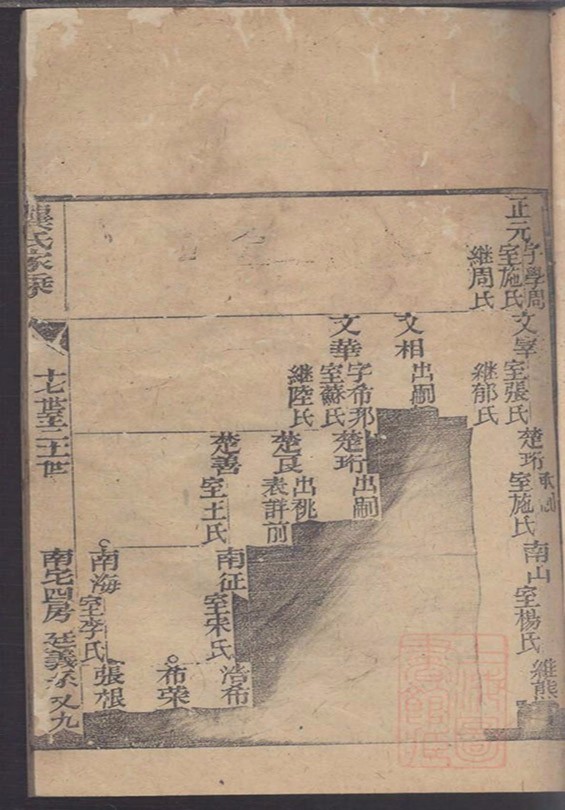 正元 字學周
室施氏
繼周氏
文宰 室張氏
繼郁氏
文相 出嗣
文華 字希邦
室蘇氏
繼陸氏
楚珩
室施氏
楚珩 出嗣
楚良 出祧
表詳前
楚善 室王氏
南山 室楊氏
南征 室宋氏
南海 室李氏
維熊
浩希
布荣
張根
龔氏家乗
十七世至二十一世
南宅四房 廷義系 又九